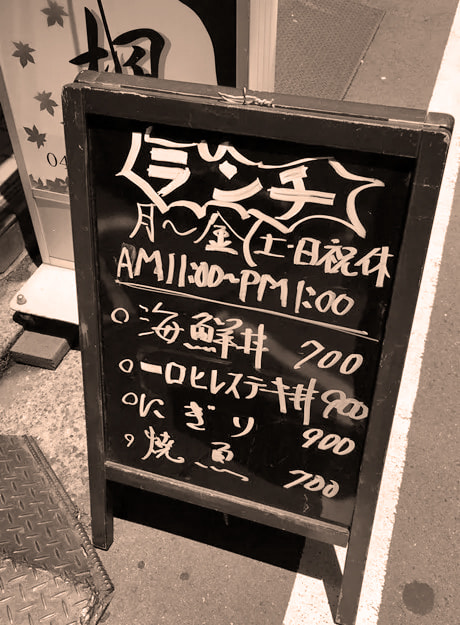 楓
04
ランチ
月〜金(土・日祝休
AM11:00~PM1:00
○海鮮丼 700
○一口ヒレステーキ丼900
○にぎり 900
○焼魚 700